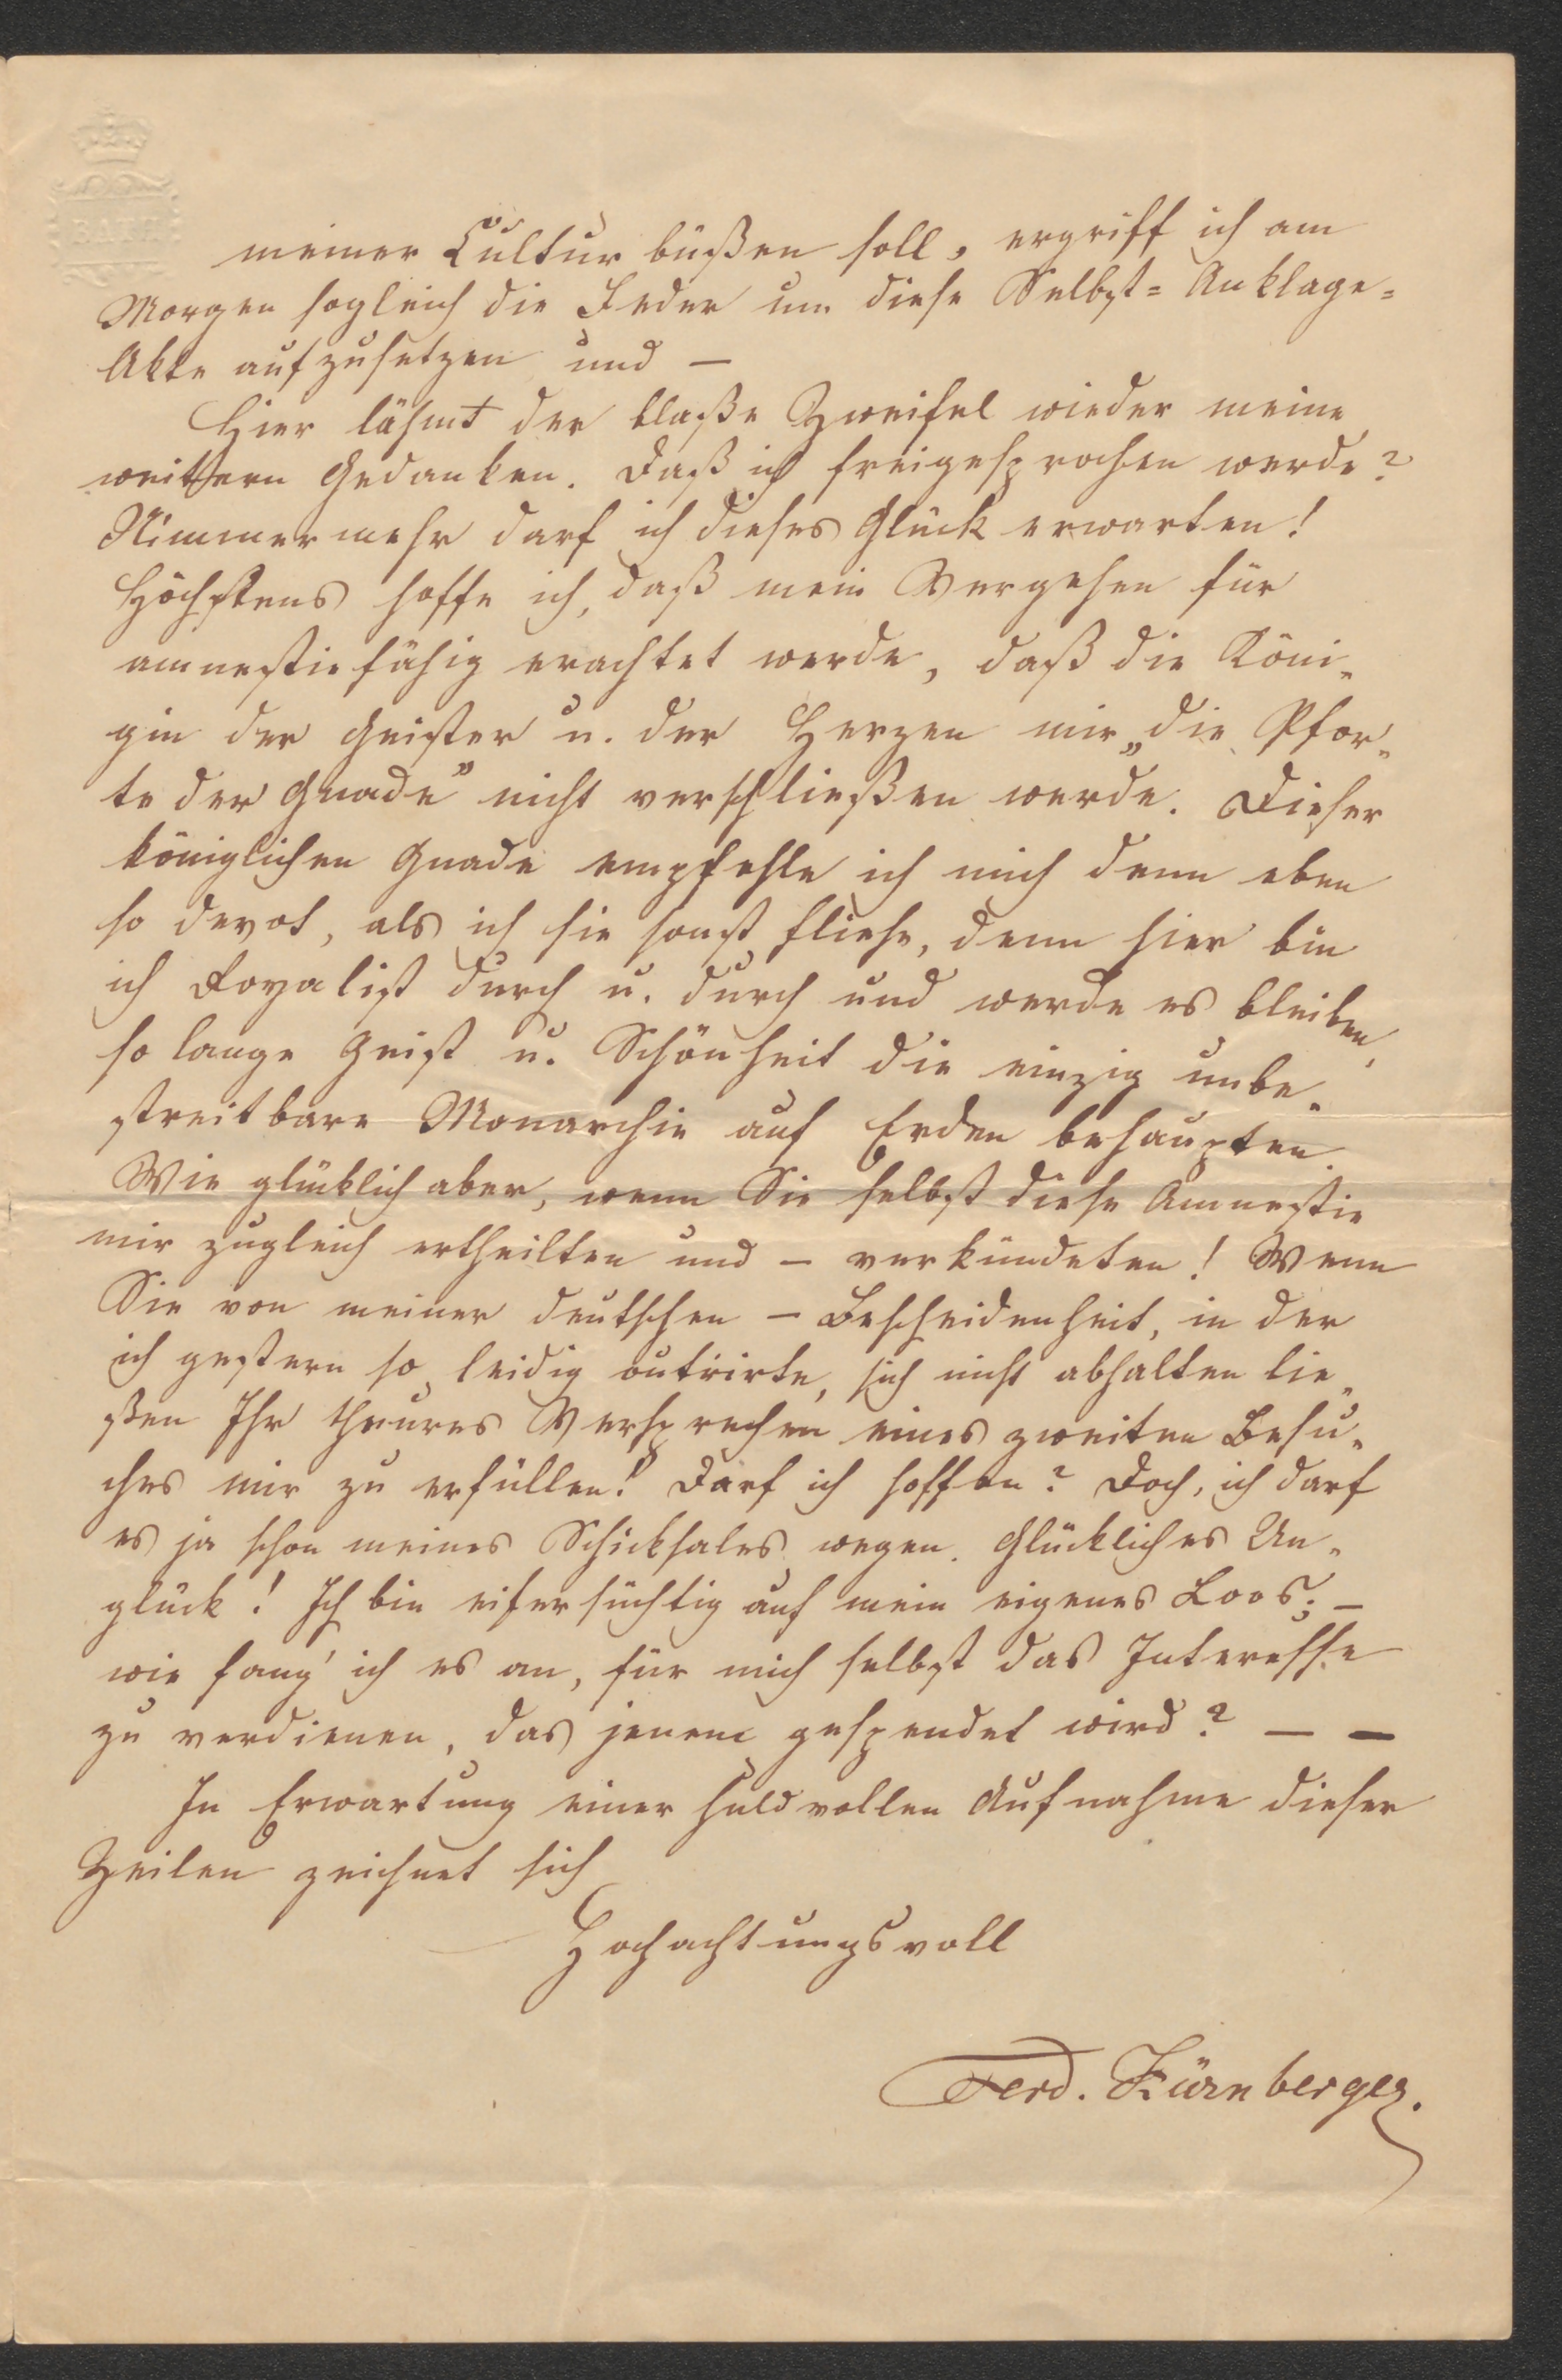 BATH
meiner Cultur büßen soll, ergriff ich am
Morgen sogleich die Feder um diese Selbst=Anklage=
Akte aufzusetzen und —
Hier lähmt der blaße Zweifel wieder meine
weitern Gedanken. Daß ich freigesprochen werde?
Nimmermehr darf ich dieses Glück erwarten!
Höchstens hoffe ich, daß mein Vergehen für
amnestiefähig erachtet werde, daß die Köni-
gin der Geister u. der Herzen mir „die Pfor-
te der Gnade" nicht verschließen werde. Dieser
königlichen Gnade empfehle ich mich denn eben
so devot, als ich sie sonst fliehe, denn hier bin
ich Royalist durch u. durch und werde es bleiben,
so lange Geist u. Schönheit die einzig unbe-
streitbare Monarchie auf Erden behaupten.
Wie glücklich aber, wenn Sie selbst diese Amnestie
mir zugleich ertheilten und – verkündeten! Wenn
Sie von meiner deutschen – Bescheidenheit, in der
ich gestern so leidig outrirte, sich nicht abhalten lie-
ßen Ihr theures Versprechen eines zweiten Besu-
ches mir zu erfüllen! Darf ich hoffen? Doch, ich darf
es ja schon meines Schicksales wegen. Glückliches Un-
glück! Ich bin eifersüchtig auf mein eigenes Loos; –
wie fang' ich es an, für mich selbst das Interesse
zu verdienen, das jenem gespendet wird? — —
In Erwartung einer huldvollen Aufnahme dieser
Zeilen zeichnet sich
Hochachtungsvoll
Ferd. Kürnberger.